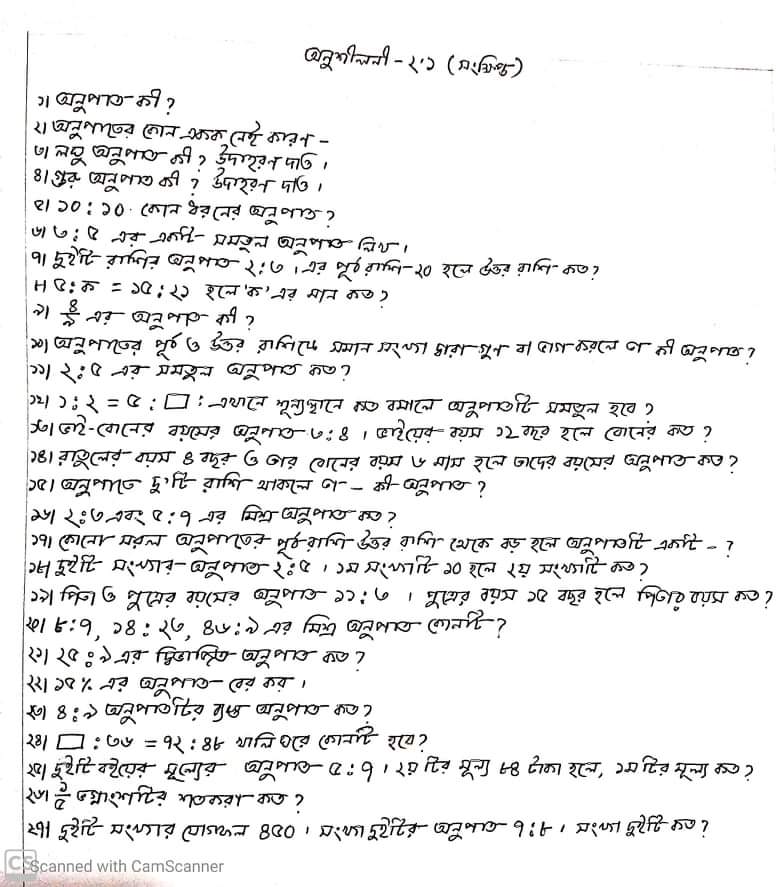 অনুশীলনী - ২.১ (সংক্ষিপ্ত)
১। অনুপাত কী ?
২। অনুপাতের কোন একক নেই কারণ -
৩। লঘু অনুপাত কী ? উদাহরণ দাও ।
৪। গুরু অনুপাত কী ? উদাহরণ দাও ।
৫। ১০ : ১০ কোন ধরনের অনুপাত ?
৬। ৩ : ৫ এর একটি সমতুল অনুপাত লিখ ।
৭। দুইটি রাশির অনুপাত ২:৩ । এর পূর্ব রাশি ২০ হলে উত্তর রাশি কত ?
৮। ৫ : ক = ১৫ : ২১ হলে 'ক' এর মান কত ?
৯। ৪/৯ এর অনুপাত কী ?
১০। অনুপাতের পূর্ব ও উত্তর রাশিকে সমান সংখ্যা দ্বারা গুন বা ভাগ করলে তা কী অনুপাত ?
১১। ২ : ৫ এর সমতুল অনুপাত কত ?
১২। ১ : ২ = ৫ : □ : এখানে শূন্যস্থানে কত বসালে অনুপাতটি সমতুল হবে ?
১৩। ভাই-বোনের বয়সের অনুপাত ৩:৪ । ভাইয়ের বয়স ১২ বছর হলে বোনের কত ?
১৪। রাতুলের বয়স ৪ বছর ও তার বোনের বয়স ৬ মাস হলে তাদের বয়সের অনুপাত কত ?
১৫। অনুপাতে দু'টি রাশি থাকলে তা - কী অনুপাত ?
১৬। ২:৩ এবং ৫:৭ এর মিশ্র অনুপাত কত ?
১৭। কোনো সরল অনুপাতের পূর্ব রাশি উত্তর রাশি থেকে বড় হলে অনুপাতটি একটি - ?
১৮। দুইটি সংখ্যার অনুপাত ২:৫ । ১ম সংখ্যাটি ১০ হলে ২য় সংখ্যাটি কত ?
১৯। পিতা ও পুত্রের বয়সের অনুপাত ১১ : ৩ । পুত্রের বয়স ১৫ বছর হলে পিতার বয়স কত ?
২০। ৮:৭, ১৪ : ২৩, ৪৬:৯ এর মিশ্র অনুপাত কোনটি ?
২১। ২৫ : ৯ এর দ্বিভাজিত অনুপাত কত ?
২২। ১৫% এর অনুপাত বের কর ।
২৩। ৪ : ৯ অনুপাতটির ব্যস্ত অনুপাত কত ?
২৪। □ : ৩৬ = ৭২ : ৪৮ খালি ঘরে কোনটি হবে ?
২৫। দুইটি বইয়ের মূল্যের অনুপাত ৫:৭ । ২য় টির মূল্য ৮৪ টাকা হলে, ১ম টির মূল্য কত ?
২৬। ১/৫ ভগ্নাংশটির শতকরা কত ?
২৭। দুইটি সংখ্যার যোগফল ৪৫০ । সংখ্যা দুইটির অনুপাত ৭:৮ । সংখ্যা দুইটি কত ?
CS Scanned with CamScanner